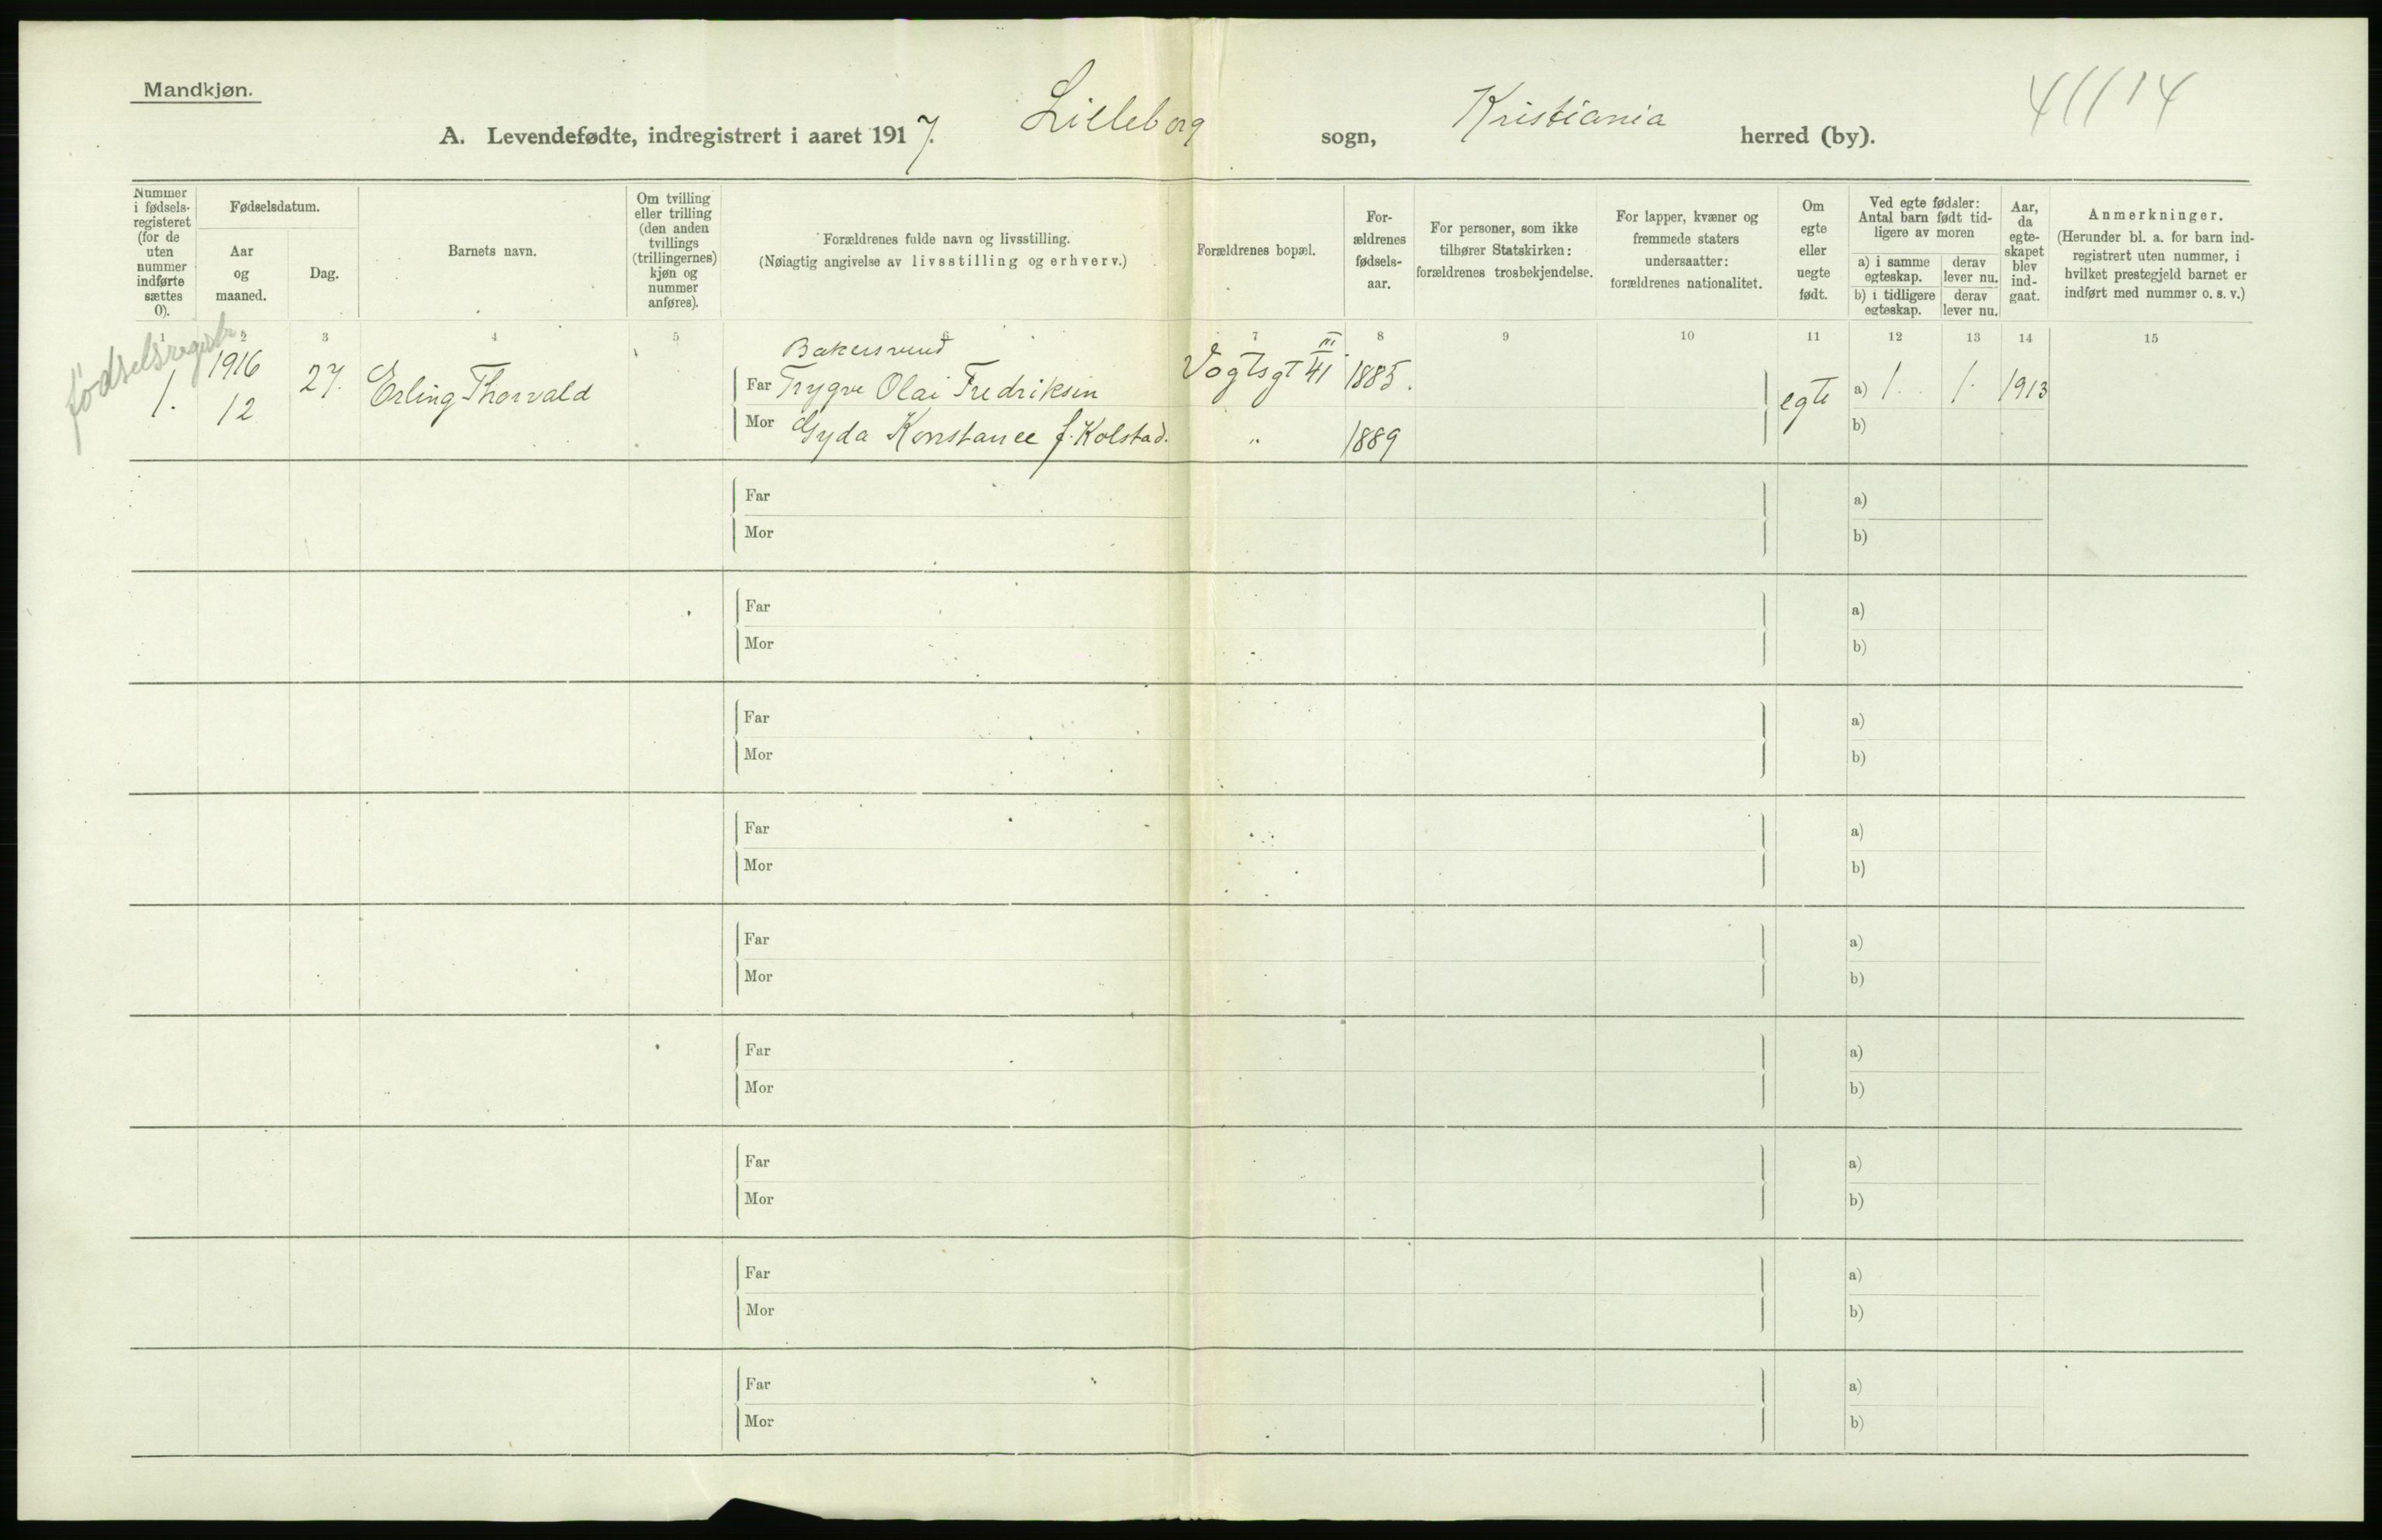 Mandkjøn.
A. Levendefødte, indregistrert i aaret 1917. Lilleborg sogn, Kristiania herred (by).
Nummer i fødselsregisteret (for de uten nummer indførte sættes 0).
Fødselsdatum.
Aar og maaned.
Dag.
Barnets navn.
Om tvilling eller trilling (den anden tvillings (trillingernes) kjøn og nummer anføres).
Forældrenes fulde navn og livsstilling.
(Nøiagtig angivelse av livsstilling og erhverv.)
Forældrenes bopæl.
Forældrenes fødselsaar.
For personer, som ikke tilhører Statskirken: forældrenes trosbekjendelse.
For lapper, kvæner og fremmede staters undersaatter: forældrenes nationalitet.
Om egte eller uegte født.
Ved egte fødsler: Antal barn født tidligere av moren
a) i samme egteskap.
derav lever nu.
b) i tidligere egteskap.
derav lever nu.
Aar, da egteskapet blev indgaat.
Anmerkninger.
(Herunder bl. a. for barn indregistrert uten nummer, i hvilket prestegjeld barnet er indført med nummer o. s. v.)
1 2 3 4 5 6 7 8 9 10 11 12 13 14 15
fødselsregistr
Bakersvend
1. 1916 12 27. Erling Thorvald
Far Trygve Olai Fredriksen Vogtsgt 41 III 1885. egte a) 1. 1. 1913
Mor Gyda Konstance f. Kolstad. " 1889 b)
Far a)
Mor b)
Far a)
Mor b)
Far a)
Mor b)
Far a)
Mor b)
Far a)
Mor b)
Far a)
Mor b)
Far a)
Mor b)
Far a)
Mor b)
Far a)
Mor b)